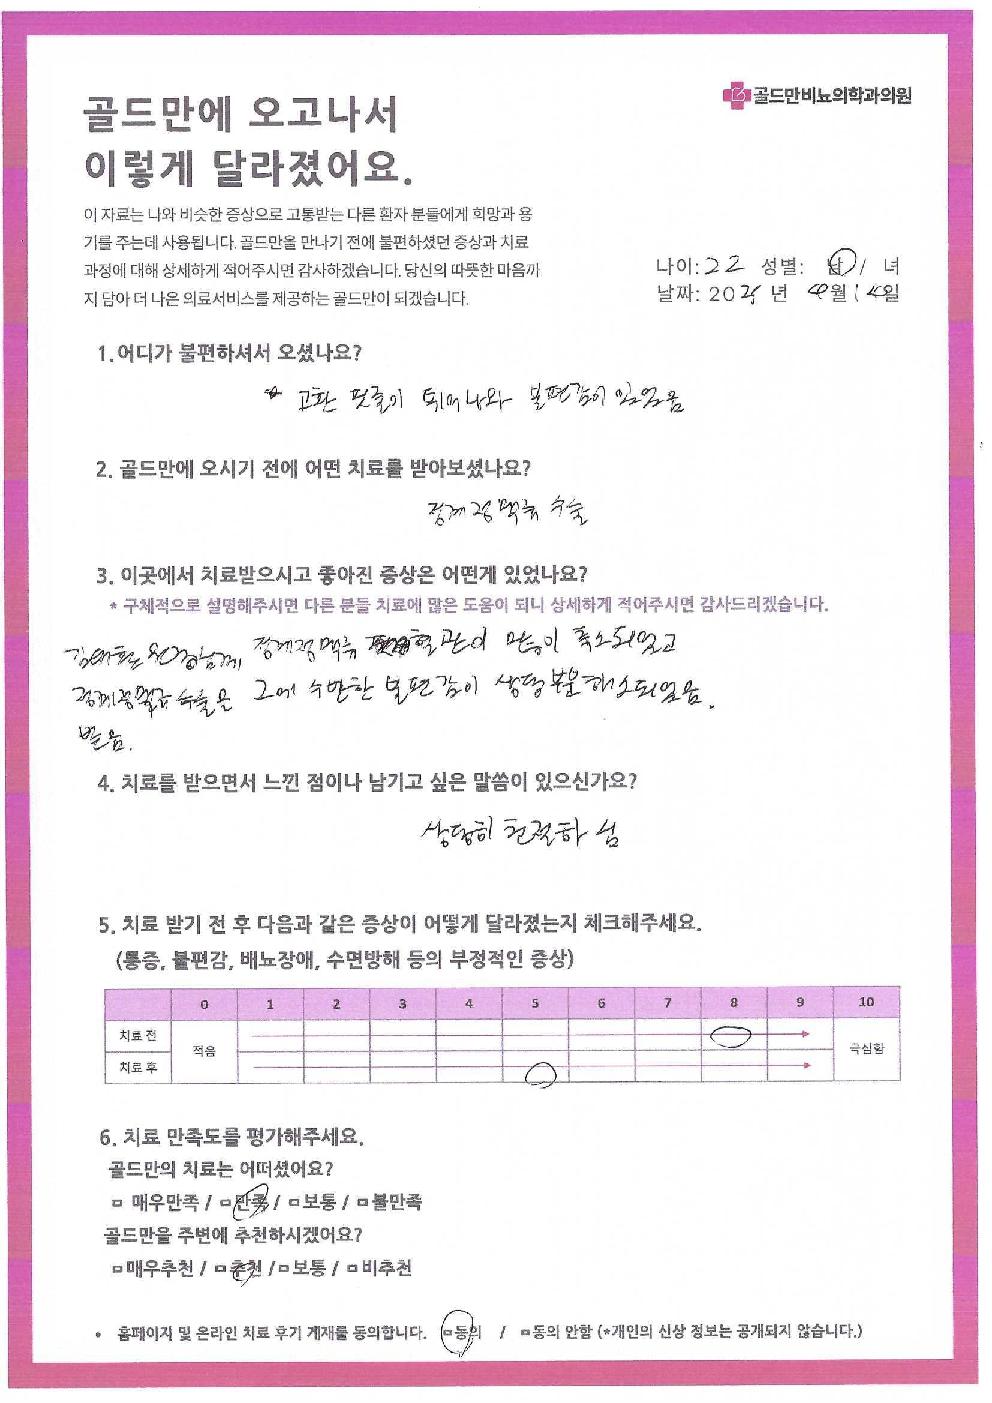 골드만비뇨의학과의원
골드만에 오고나서
이렇게 달라졌어요.
이 자료는 나와 비슷한 증상으로 고통받는 다른 환자 분들에게 희망과 용
기를 주는데 사용됩니다. 골드만을 만나기 전에 불편하셨던 증상과 치료
과정에 대해 상세하게 적어주시면 감사하겠습니다. 당신의 따뜻한 마음까
지 담아 더 나은 의료서비스를 제공하는 골드만이 되겠습니다.
나이: 22 성별: 남 / 녀
날짜: 2025 년 4월 14일
1. 어디가 불편하셔서 오셨나요?
고환 핏줄이 튀어나와 불편감이 있었음
2. 골드만에 오시기 전에 어떤 치료를 받아보셨나요?
정계정맥류 수술
3. 이곳에서 치료받으시고 좋아진 증상은 어떤게 있었나요?
* 구체적으로 설명해주시면 다른 분들 치료에 많은 도움이 되니 상세하게 적어주시면 감사드리겠습니다.
원장님께 정계정맥류 혈관이 많이 축소되었고
수술을 그에 수반한 불편감이 상당부분 해소되었음.
받음.
4. 치료를 받으면서 느낀 점이나 남기고 싶은 말씀이 있으신가요?
상당히 친절하심
5. 치료 받기 전 후 다음과 같은 증상이 어떻게 달라졌는지 체크해주세요.
(통증, 불편감, 배뇨장애, 수면방해 등의 부정적인 증상)
0 1 2 3 4 5 6 7 8 9 10
치료 전
적음
극심함
치료 후
6. 치료 만족도를 평가해주세요.
골드만의 치료는 어떠셨어요?
매우만족 / 만족 / 보통 / 불만족
골드만을 주변에 추천하시겠어요?
매우추천 / 추천 / 보통 / 비추천
• 홈페이지 및 온라인 치료 후기 게재를 동의합니다. 동의 / 동의 안함 (*개인의 신상 정보는 공개되지 않습니다.)